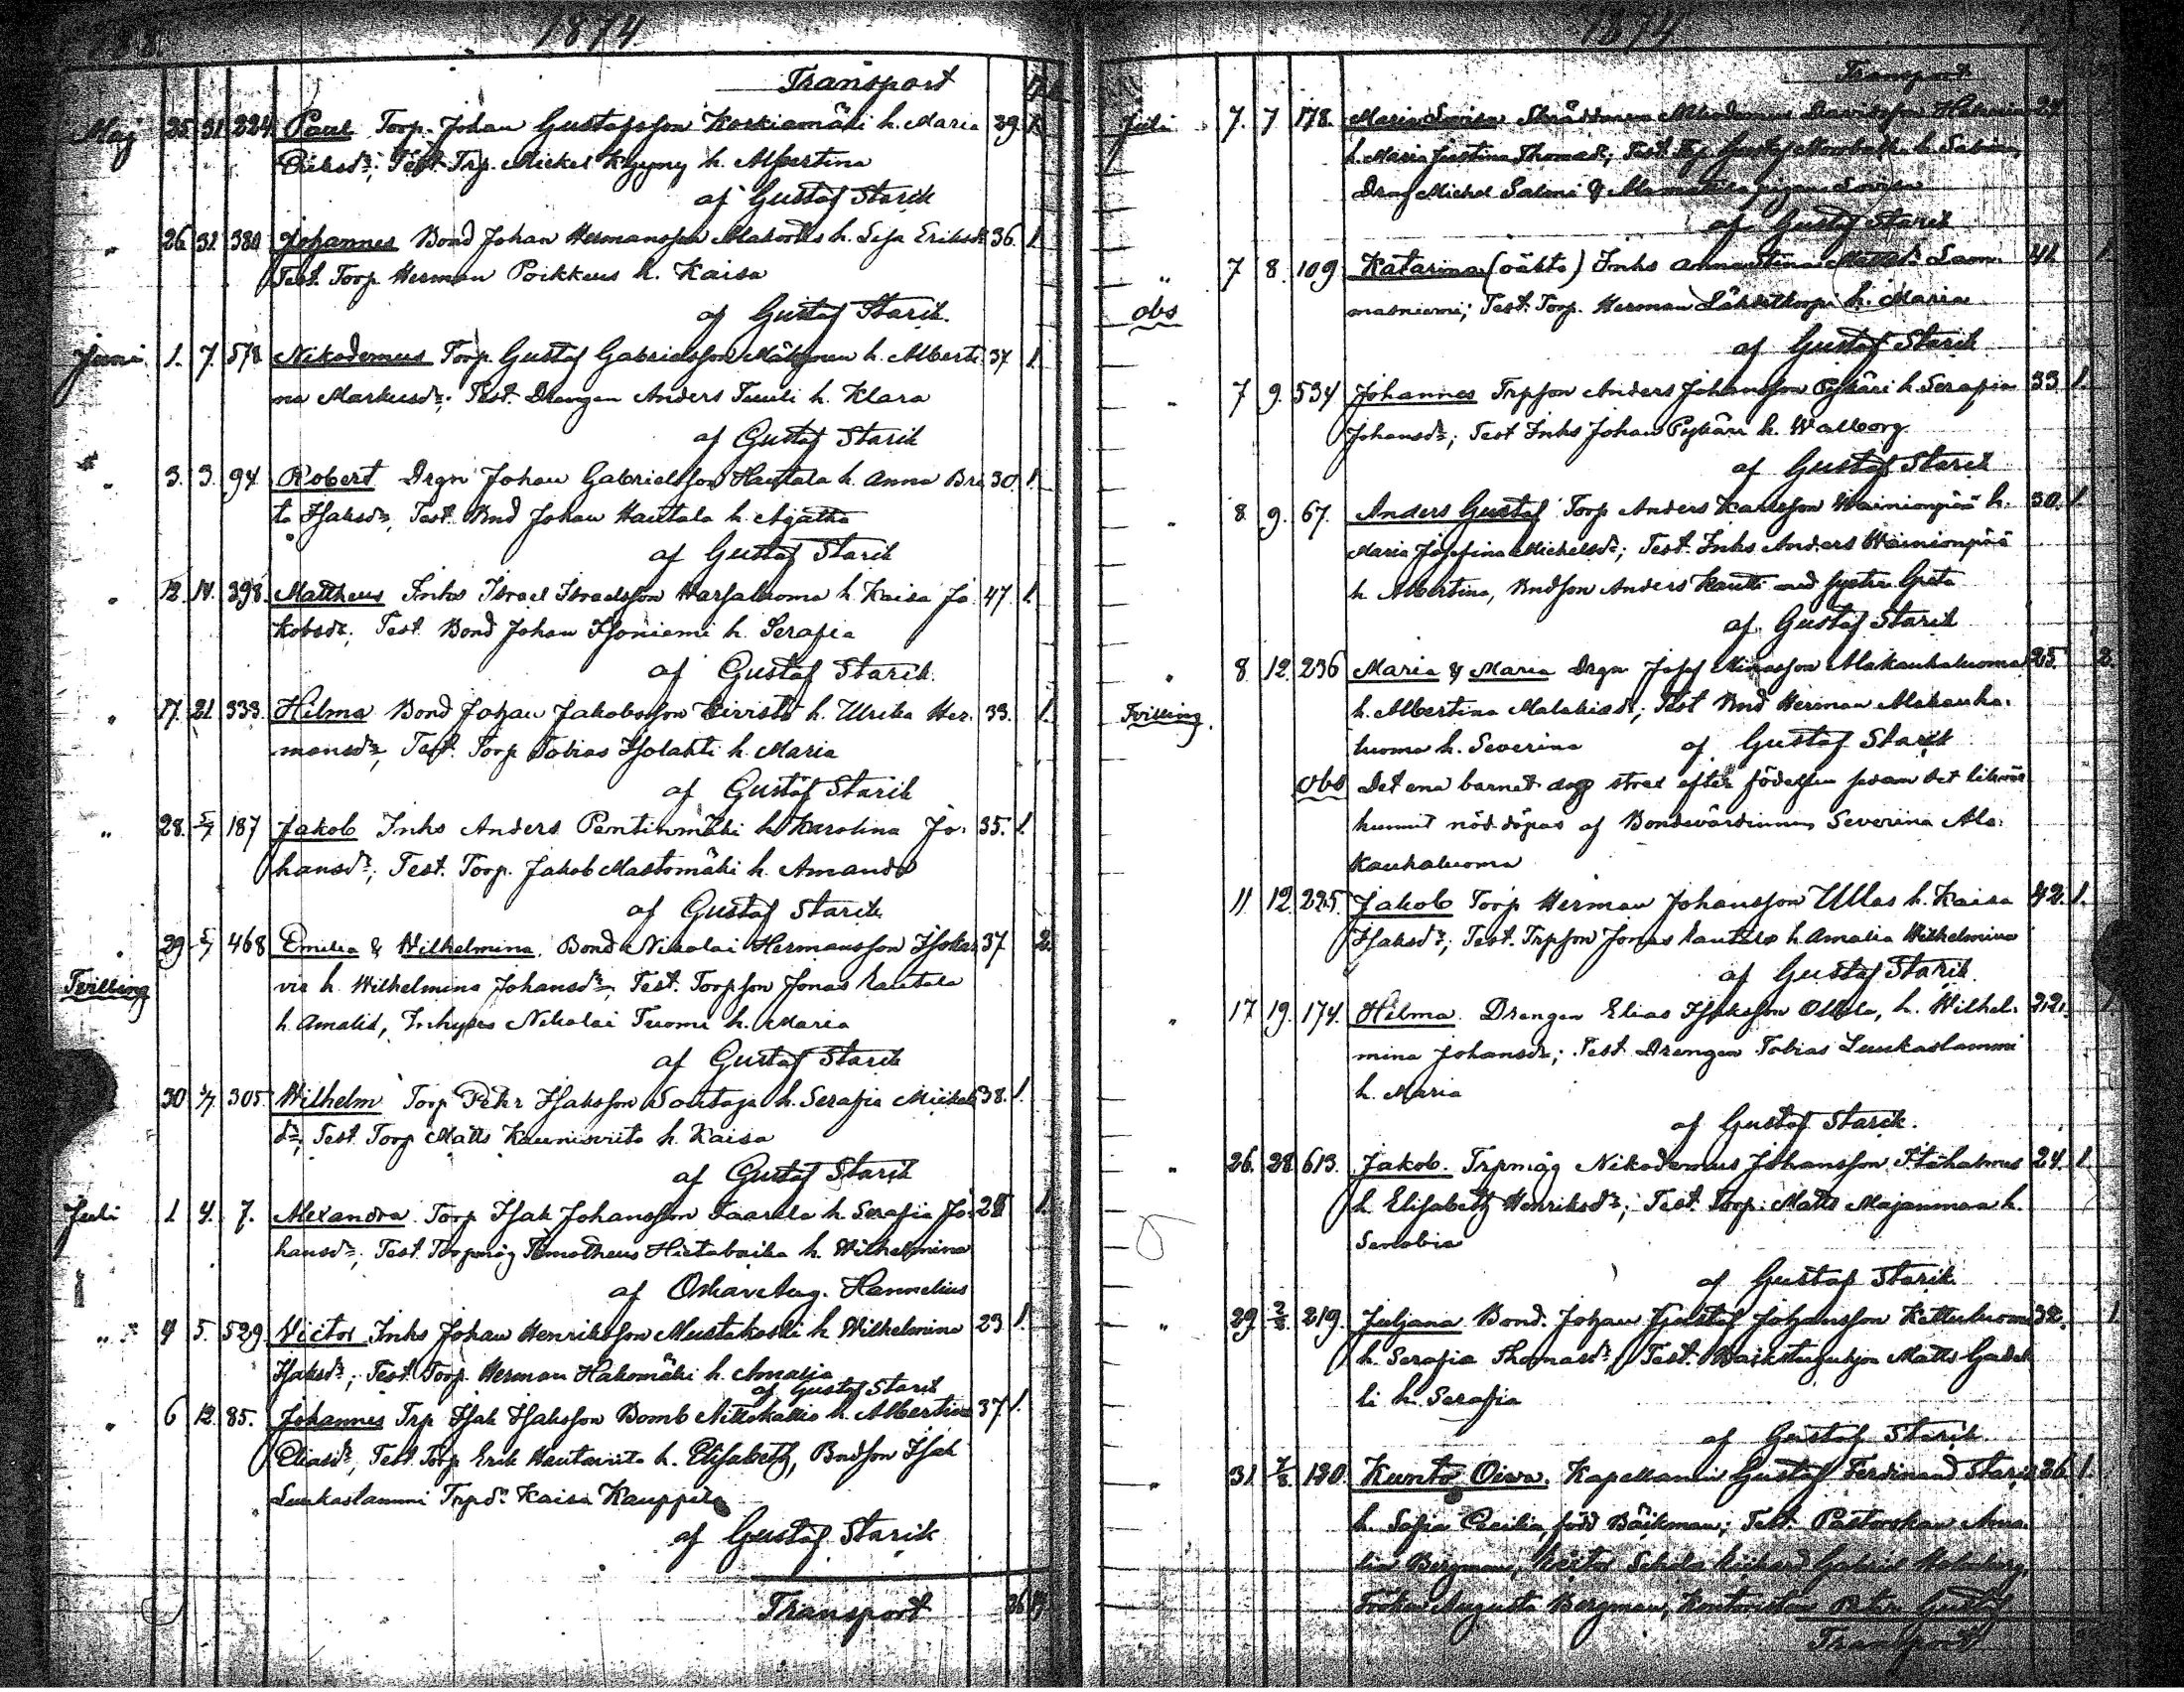 188. 1874.
Transport
Maj 25. 31. 224. Paul Torp. Johan Gustafsson Koskiamäki h. Maria 39. 1.
Eriksdr; Test. Trp. Mickel Kyyny h. Albertina
af Gustaf Starik
" 26. 31. 380. Johannes Bond Johan Hermansson h. Lisa Eriksdr 36. 1.
Test. Torp Herman Poikkeus h. Kaisa
af Gustaf Starik.
Juni 1. 7. 578 Nikodemus Torp. Gustaf Gabrielsson Mäkynen h. Alberti 37 1.
na Markusdr; Test. Drengen Anders Tuuli h. Klara
af Gustaf Starik
" 3. 3. 94 Robert Drgn Johan Gabrielsson Hautala h. Anna Bri 30. 1.
ta Isaksdr, Test. Bnd Johan Hautala h. Agatha
af Gustaf Starik
" 12. 14. 398. Mattheus Inhs Israel Israelsson Harjaluoma h. Kaisa Ja 47. 1.
kobsdr; Test. Bond Johan Isoniemi h. Serafia
af Gustaf Starik.
" 17. 21. 333. Hilma Bond Johan Jakobsson h. Ulrika Her. 33. 1.
mansdr, Test. Torp Tobias Isolahti h. Maria
af Gustaf Starik
" 28. 5/7 187 Jakob Inhs Anders Pentinmäki h. Karolina Jo. 35. 1.
hansdr; Test. Torp. Jakob Mastomäki h. Amanda
af Gustaf Starik
" 29 5/7 468 Emilia & Wilhelmina. Bond. Nikolai Hermansson Isokas 37 2.
Tvilling vie h. Wilhelmina Johansdr, Test. Torpson Jonas Rautala
h. Amalia, Inhyses Nikolai Tuomi h. Maria
af Gustaf Starik
30 5/7 305 Wilhelm Torp Pehr Isaksson h. Serafia Mickels 38. 1.
dr; Test. Torp Matts h. Kaisa
af Gustaf Starik
Juli 1 4. 7. Alexandra Torp Isak Johansson Saarela h. Serafia Jo. 28 1.
hansdr, Test. Torpmåg Timotheus Hietaboika h. Wilhelmina
af Oskar Aug. Hannelius
" 4 5. 529. Victor Inhs Johan Henriksson Mustakoski h. Wilhelmina 23 1.
Isaksdr; Test. Torp. Herman Hakomäki h. Amalia
af Gustaf Starik
" 6 12. 85. Johannes Trp Isak Isaksson Bomb h. Albertina 37. 1.
Eliasdr, Test. Torp Erik Hautaviita h. Elisabeth, Bndson Isak
Luukaslammi Trpdr Kaisa Kauppila
af Gustaf Starik
Transport
1874
Transport
Juli 7. 7 178. Maria Lovisa Skräddaren Nikodemus Davidsson 24
h. Maria Justina Thomasdr; Test. Trp Gustaf h. Sabina
Drng Michel Salmi & pigan Lovisa
af Gustaf Starik
" 7 8. 109 Katarina (oäkta) Inhs Annastina Mattsdr Lam 41 1.
obs masniemi; Test. Torp. Herman h. Maria
af Gustaf Starik
" 7 9. 534 Johannes Trpson Anders Johansson Pykäri h. Serafia 33 1.
Johansdr; Test Inhs Johan Pykäri h. Walborg
af Gustaf Starik
" 8. 9. 67. Anders Gustaf Torp Anders Karlsson Wainionpää h. 30. 1.
Maria Josefina Michelsdr; Test. Inhs Anders Wainionpää
h. Albertina, Bndson Anders Kautti med syster Greta
af Gustaf Starik
" 8 12. 236 Maria & Maria Drgn Josef Alakauhaluoma 25. 2.
Tvilling. h. Albertina Malakiasdr; Test Bnd Herman Alakauha.
luoma h. Severina af Gustaf Starik
obs Det ena barnet dog strax efter födelsen sedan det likväl
hunnit nöd döpas af Bondevärdinnan Severina Ala.
kauhaluoma
11. 12. 225. Jakob Torp Herman Johansson Ullas h. Kaisa 42. 1.
Isaksdr; Test. Trpson Jonas Rautala h. Amalia Wilhelmina
af Gustaf Starik.
" 17 19. 174. Hilma. Drengen Elias Isaksson Ollila, h. Wilhel. 22. 1
mina Johansdr; Test. Drengen Tobias Luukaslammi
h. Maria
af Gustaf Starik.
" 26. 28 613. Jakob. Trpmåg Nikodemus Johansson 24. 1.
h. Elisabeth Henriksdr; Test. Torp. Matts Majanmaa h.
Senobia
af Gustaf Starik
" 29. 2/8 219. Juljana Bond. Johan Gustaf Johansson Kettuluoma 32. 1
h. Serafia Thomasdr; Test. Matts Gadol
li h. Serafia
af Gustaf Starik
" 31. 7/8 180. Kunto Oiva. Kapellanen Gustaf Ferdinand Starik 36 1.
h. Sofia Cecilia född Bäckman; Test. Pastorskan Ama.
lia Bergman, Richard Gabriel Holmberg,
Fröken Augusta Bergman, Gustaf
Transport